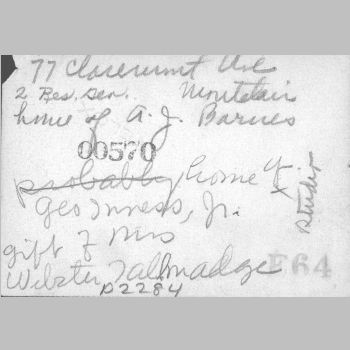 77 Claremont Ave
2 Res. Den. Montclair
home of A. J. Barnes
00570
probably home of
Geo Inness, Jr.
studio
gift of Mrs
Webster Tallmadge
F64
P2284